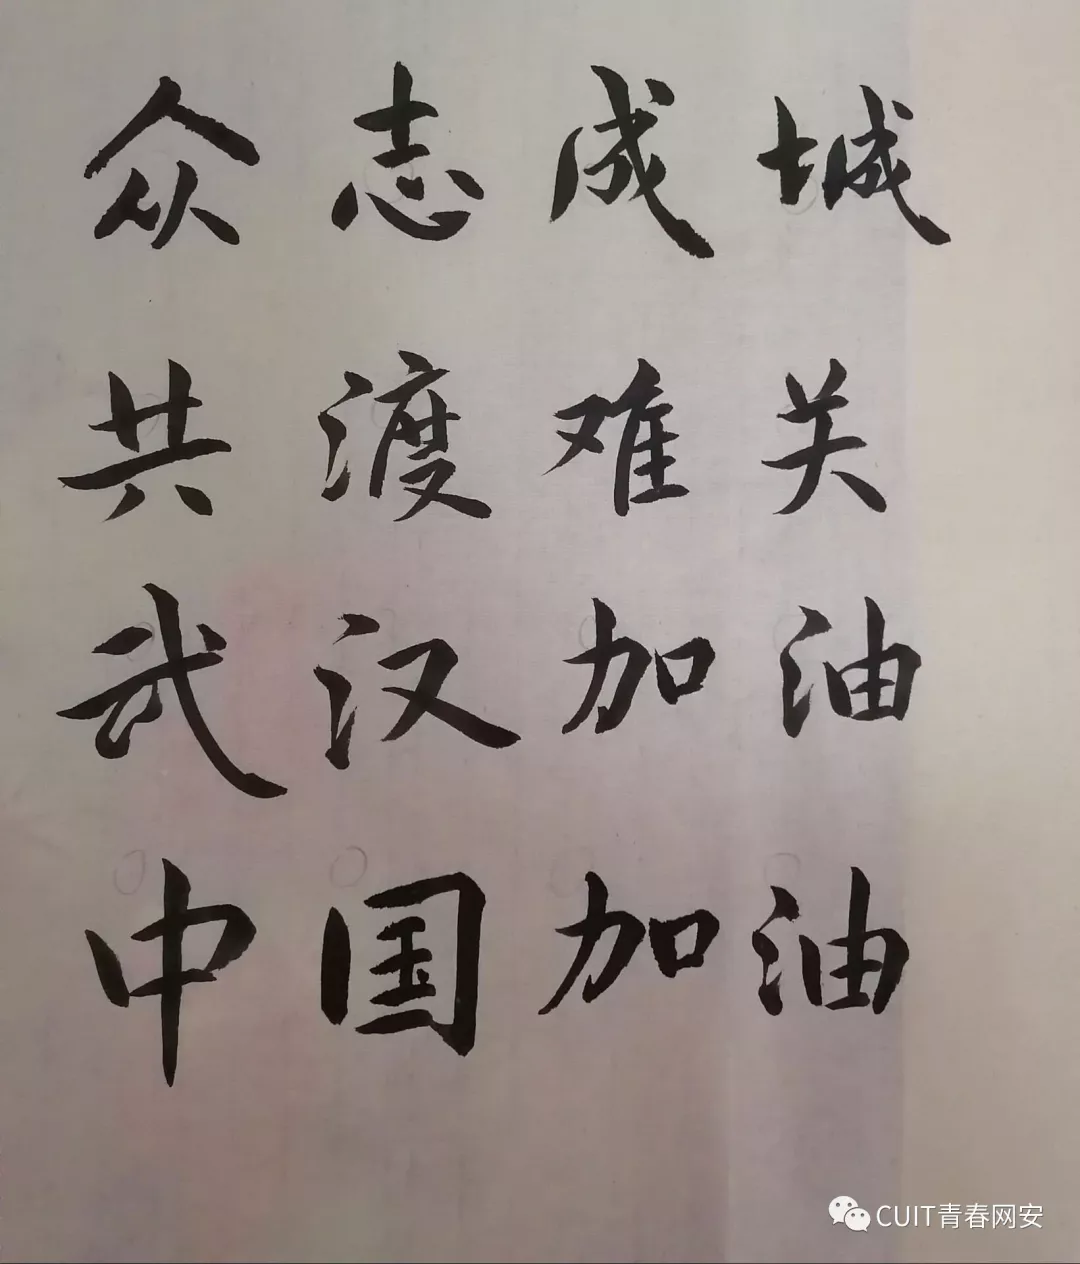 众志成城
共渡难关
武汉加油
中国加油
CUIT青春网安